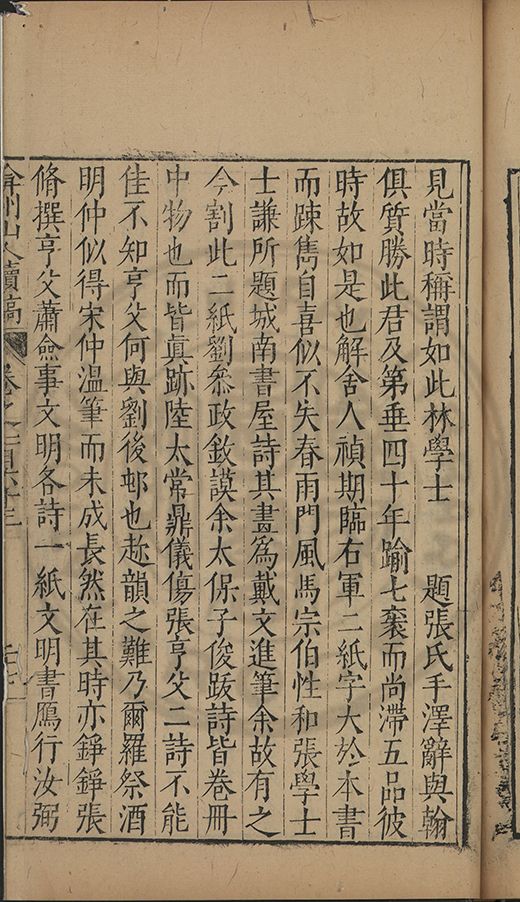 見當時稱謂如此林學士 題張氏手澤辭與翰
俱質勝此君及第垂四十年踰七袠而尚滯五品彼
時故如是也解舍人禎期臨右軍二紙字大於本書
而踈雋自喜似不失春雨門風馬宗伯性和張學士
士謙所題城南書屋詩其畫為戴文進筆余故有之
今割此二紙劉叅政敔謨余太保子俊跋詩皆卷冊
中物也而皆眞跡陸太常鼎儀傷張亨父二詩不能
佳不知亨父何與劉後邨也趂韻之難乃爾羅祭酒
明仲似得宋仲溫筆而未成長然在其時亦錚錚張
脩撰亨父蕭僉事文明各詩一紙文明書鴈行汝弼
弇州山人續稿 卷之一百六十三